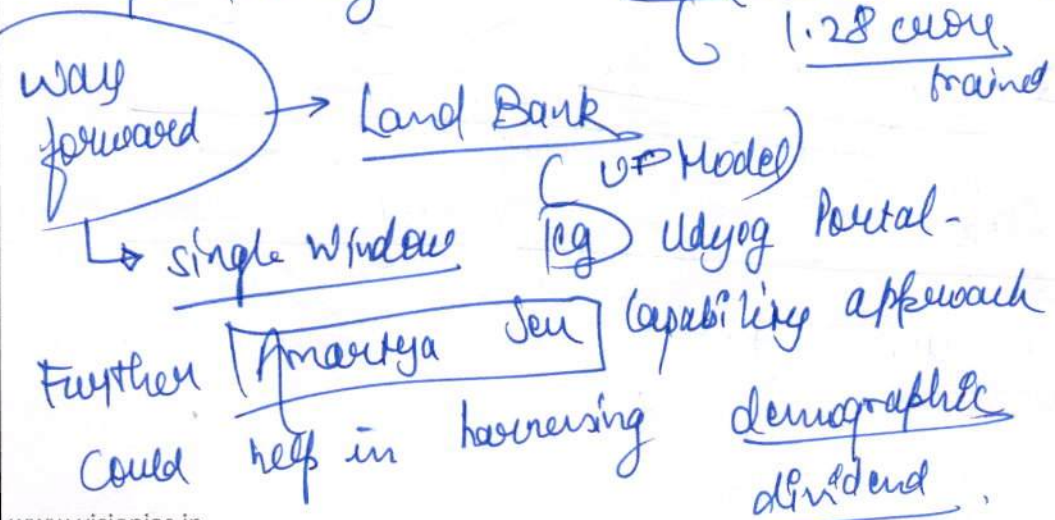 1.28 crore
trained
way
forward → Land Bank
(UP Model)
↳ single window eg Udyog Portal -
Further Amartya Sen Capability approach
Could help in harnessing demographic
dividend.
www.visionias.in